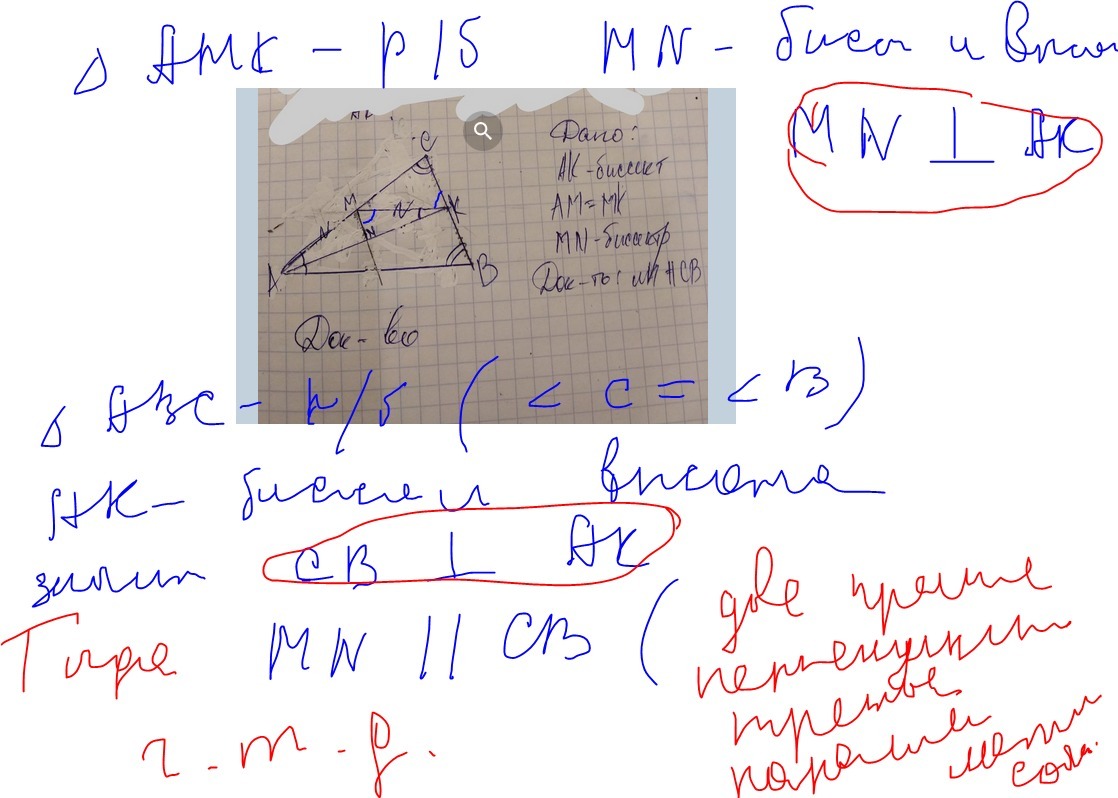 Δ АМК - р/б MN - бисс и высо
MN ⊥ АК
Дано:
АК - биссект
АМ = МК
MN - биссектр
Док-ть: MN || СВ
C
M
N
K
A
B
Док-во
Δ АВС - р/б (< C = < B)
АК - биссек и высота
значит CB ⊥ АК
Тогда MN || СВ (две прямые
перпендикулярн
третьей
паралле
между
собой.
ч.т.д.